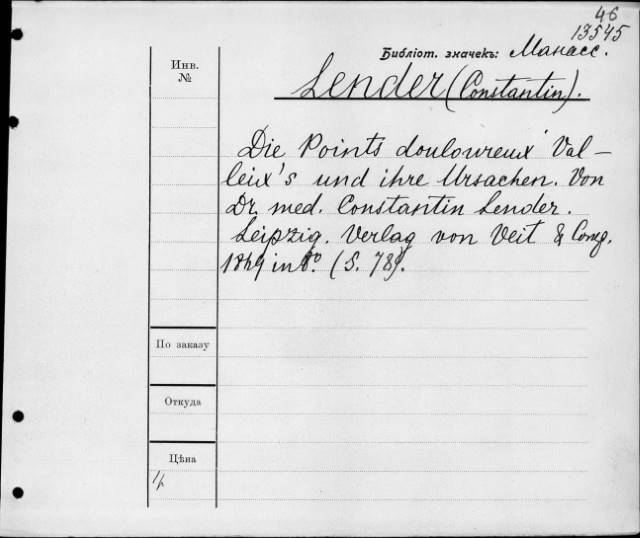 46
13545
Библіот. значекъ: Манасс.
Инв.
№
Lender (Constantin).
Die Points douloureux Val-
leix's und ihre Ursachen. Von
Dr. med. Constantin Lender.
Leipzig. Verlag von Veit & Comp.
1869 in 8°. (S. 78).
По заказу
Откуда
Цѣна